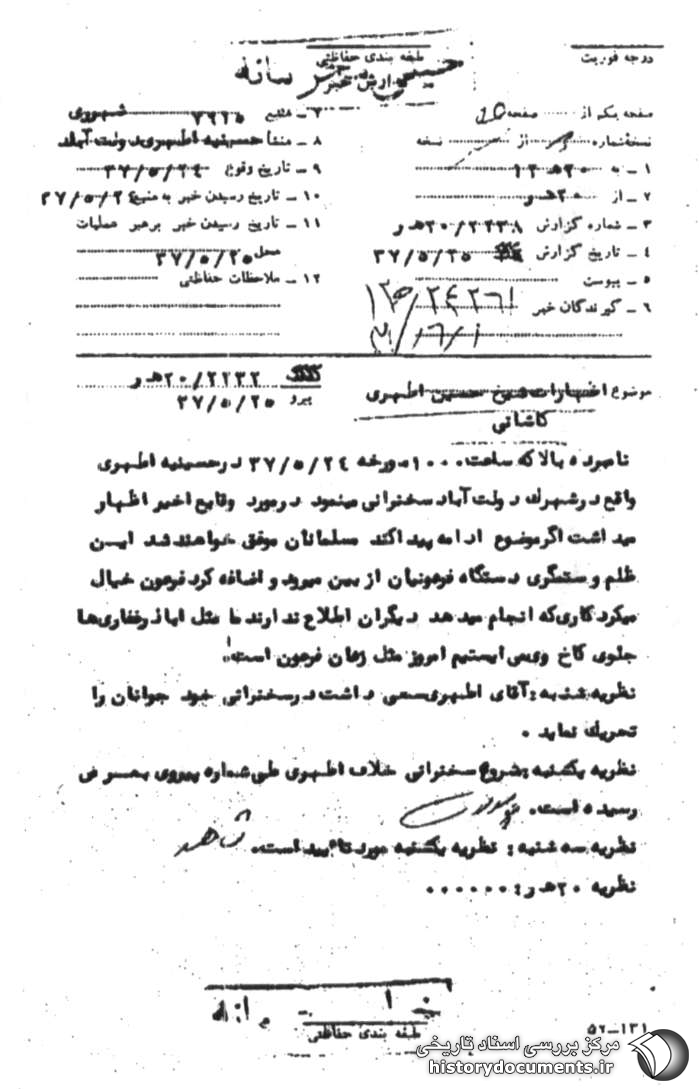 درجه فوریت
طبقه بندی حفاظتی
گزارش خبر
صفحه یکم از صفحه
نسخه شماره از نسخه
۱ ـ به ۲۰ هـ ۱۲
۲ ـ از ۲۰ هـ ر
۳ ـ شماره گزارش ۲۰/۲۲۳۸ هـ ر
۴ ـ تاریخ گزارش ۳۷/۵/۲۵
۵ ـ پیوست
۶ ـ گیرندگان خبر
۷ ـ منبع
۸ ـ منشأ حسینیه اطهری دولت آباد
۹ ـ تاریخ وقوع ۳۷/۵/۲۴
۱۰ ـ تاریخ رسیدن خبر به منبع ۳۷/۵/۲۴
۱۱ ـ تاریخ رسیدن خبر برهبر عملیات
محل ۳۷/۵/۲۵
۱۲ ـ ملاحظات حفاظتی
موضوع اظهارات شیخ حسین اطهری
کاشانی
۲۰/۲۲۳۲ هـ ر
پیرو ۳۷/۵/۲۵
نامبرده بالا که ساعت ۱۰۰۰ مورخه ۳۷/۵/۲۴ در حسینیه اطهری
واقع در شهرک دولت آباد سخنرانی مینمود در مورد وقایع اخیر اظهار
میداشت اگر موضوع ادامه پیدا کند مسلمانان موفق خواهند شد این
ظلم و ستمگری دستگاه فرعونیان از بین میرود و اضافه کرد فرعون خیال
میکرد کاری که انجام میدهد دیگران اطلاع ندارند ما مثل اباذر غفاری ها
جلوی کاخ وی می ایستیم امروز مثل زمان فرعون است.
نظریه شنبه: آقای اطهری سعی داشت در سخنرانی خود جوانان را
تحریک نماید.
نظریه یکشنبه: شروع سخنرانی خلاف اطهری طی شماره پیروی بعرض
رسیده است.
نظریه سه شنبه: نظریه یکشنبه مورد تأیید است.
نظریه ۲۰ هـ ر: ۰۰۰۰۰۰
طبقه بندی حفاظتی
۵۲-۱۳۱
مرکز بررسی اسناد تاریخی
historydocuments.ir